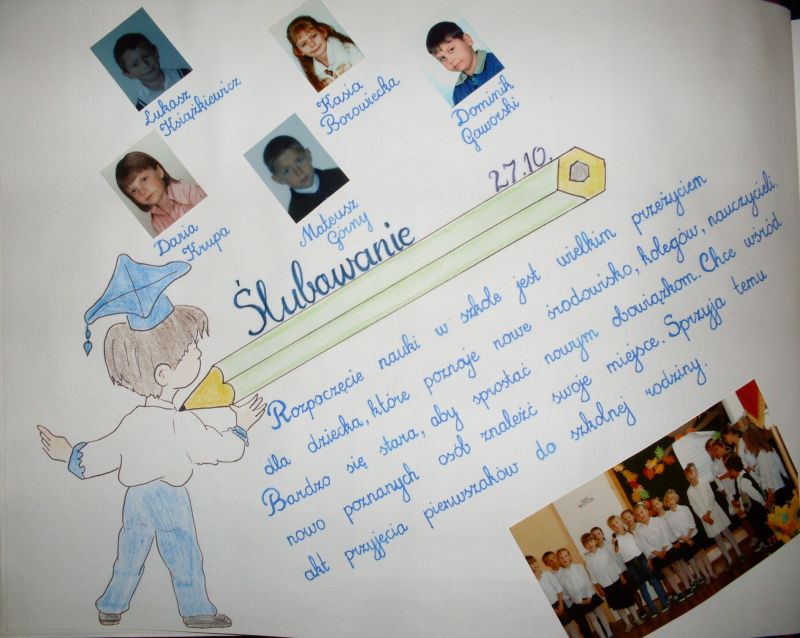 Łukasz
Książkiewicz
Kasia
Borowiecka
Dominik
Gaworski
Daria
Krupa
Mateusz
Górny
27.10.
Ślubowanie
Rozpoczęcie nauki w szkole jest wielkim przeżyciem
dla dziecka, które poznoje nowe środowisko, kolegów, nauczycieli.
Bardzo się stara, aby sprostać nowym obowiązkom. Chce wśród
nowo poznanych osób znaleźć swoje miejsce. Sprzyja temu
akt przyjęcia pierwszaków do szkolnej rodziny.